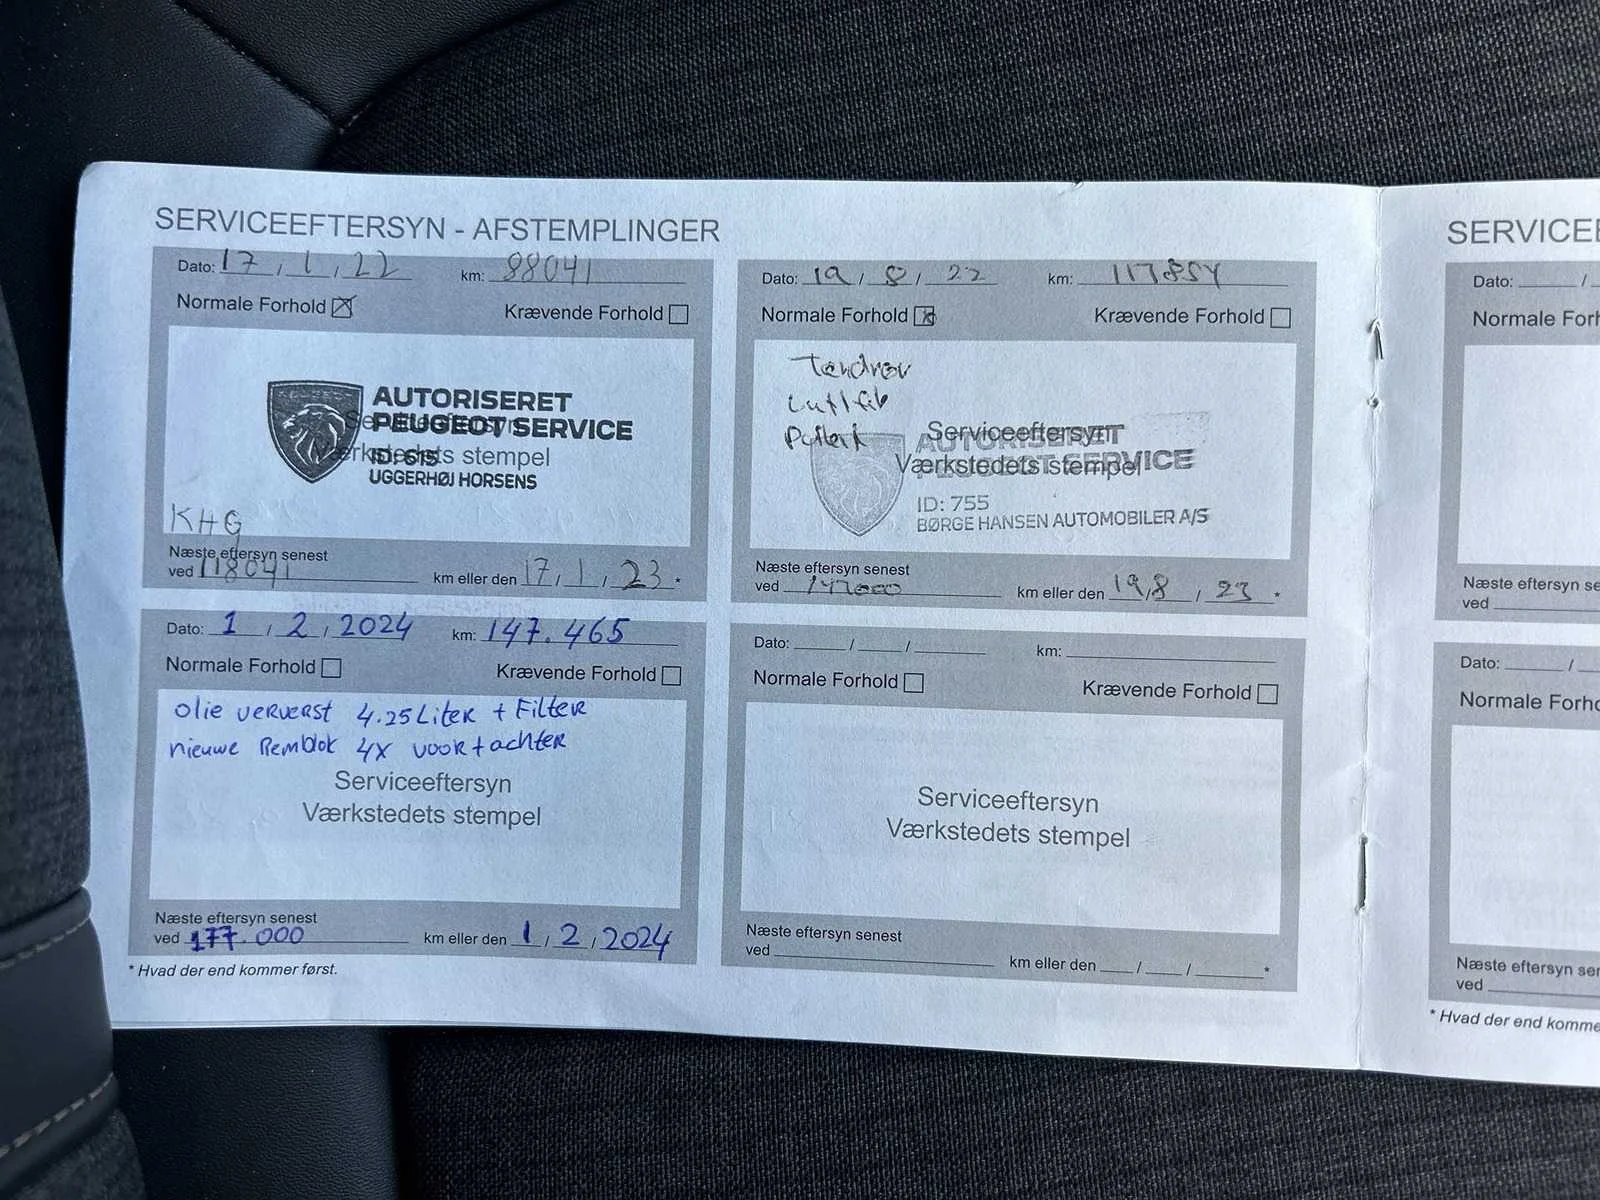 SERVICEEFTERSYN - AFSTEMPLINGER
Dato: 17 / 1 / 22 km: 88041
Normale Forhold Krævende Forhold
AUTORISERET
PEUGEOT SERVICE
Serviceeftersyn
Værkstedets stempel
ID: 615
UGGERHØJ HORSENS
KHG
Næste eftersyn senest
ved 118041 km eller den 17 / 1 / 23 *
Dato: 19 / 8 / 22 km: 117854
Normale Forhold Krævende Forhold
Tændrør
Luftfilt
Pollenf
Serviceeftersyn
Værkstedets stempel
AUTORISERET
PEUGEOT SERVICE
ID: 755
BØRGE HANSEN AUTOMOBILER A/S
Næste eftersyn senest
ved 147000 km eller den 19 / 8 / 23 *
Dato: 1 / 2 / 2024 km: 147.465
Normale Forhold Krævende Forhold
olie ververst 4.25 Liter + Filter
nieuwe Remblok 4x voor + achter
Serviceeftersyn
Værkstedets stempel
Næste eftersyn senest
ved 177.000 km eller den 1 / 2 / 2024
* Hvad der end kommer først.
Dato: / / km:
Normale Forhold Krævende Forhold
Serviceeftersyn
Værkstedets stempel
Næste eftersyn senest
ved km eller den / / *
SERVICEE
Dato: /
Normale Forh
Næste eftersyn se
ved
Dato: /
Normale Forho
Næste eftersyn sen
ved
* Hvad der end komme